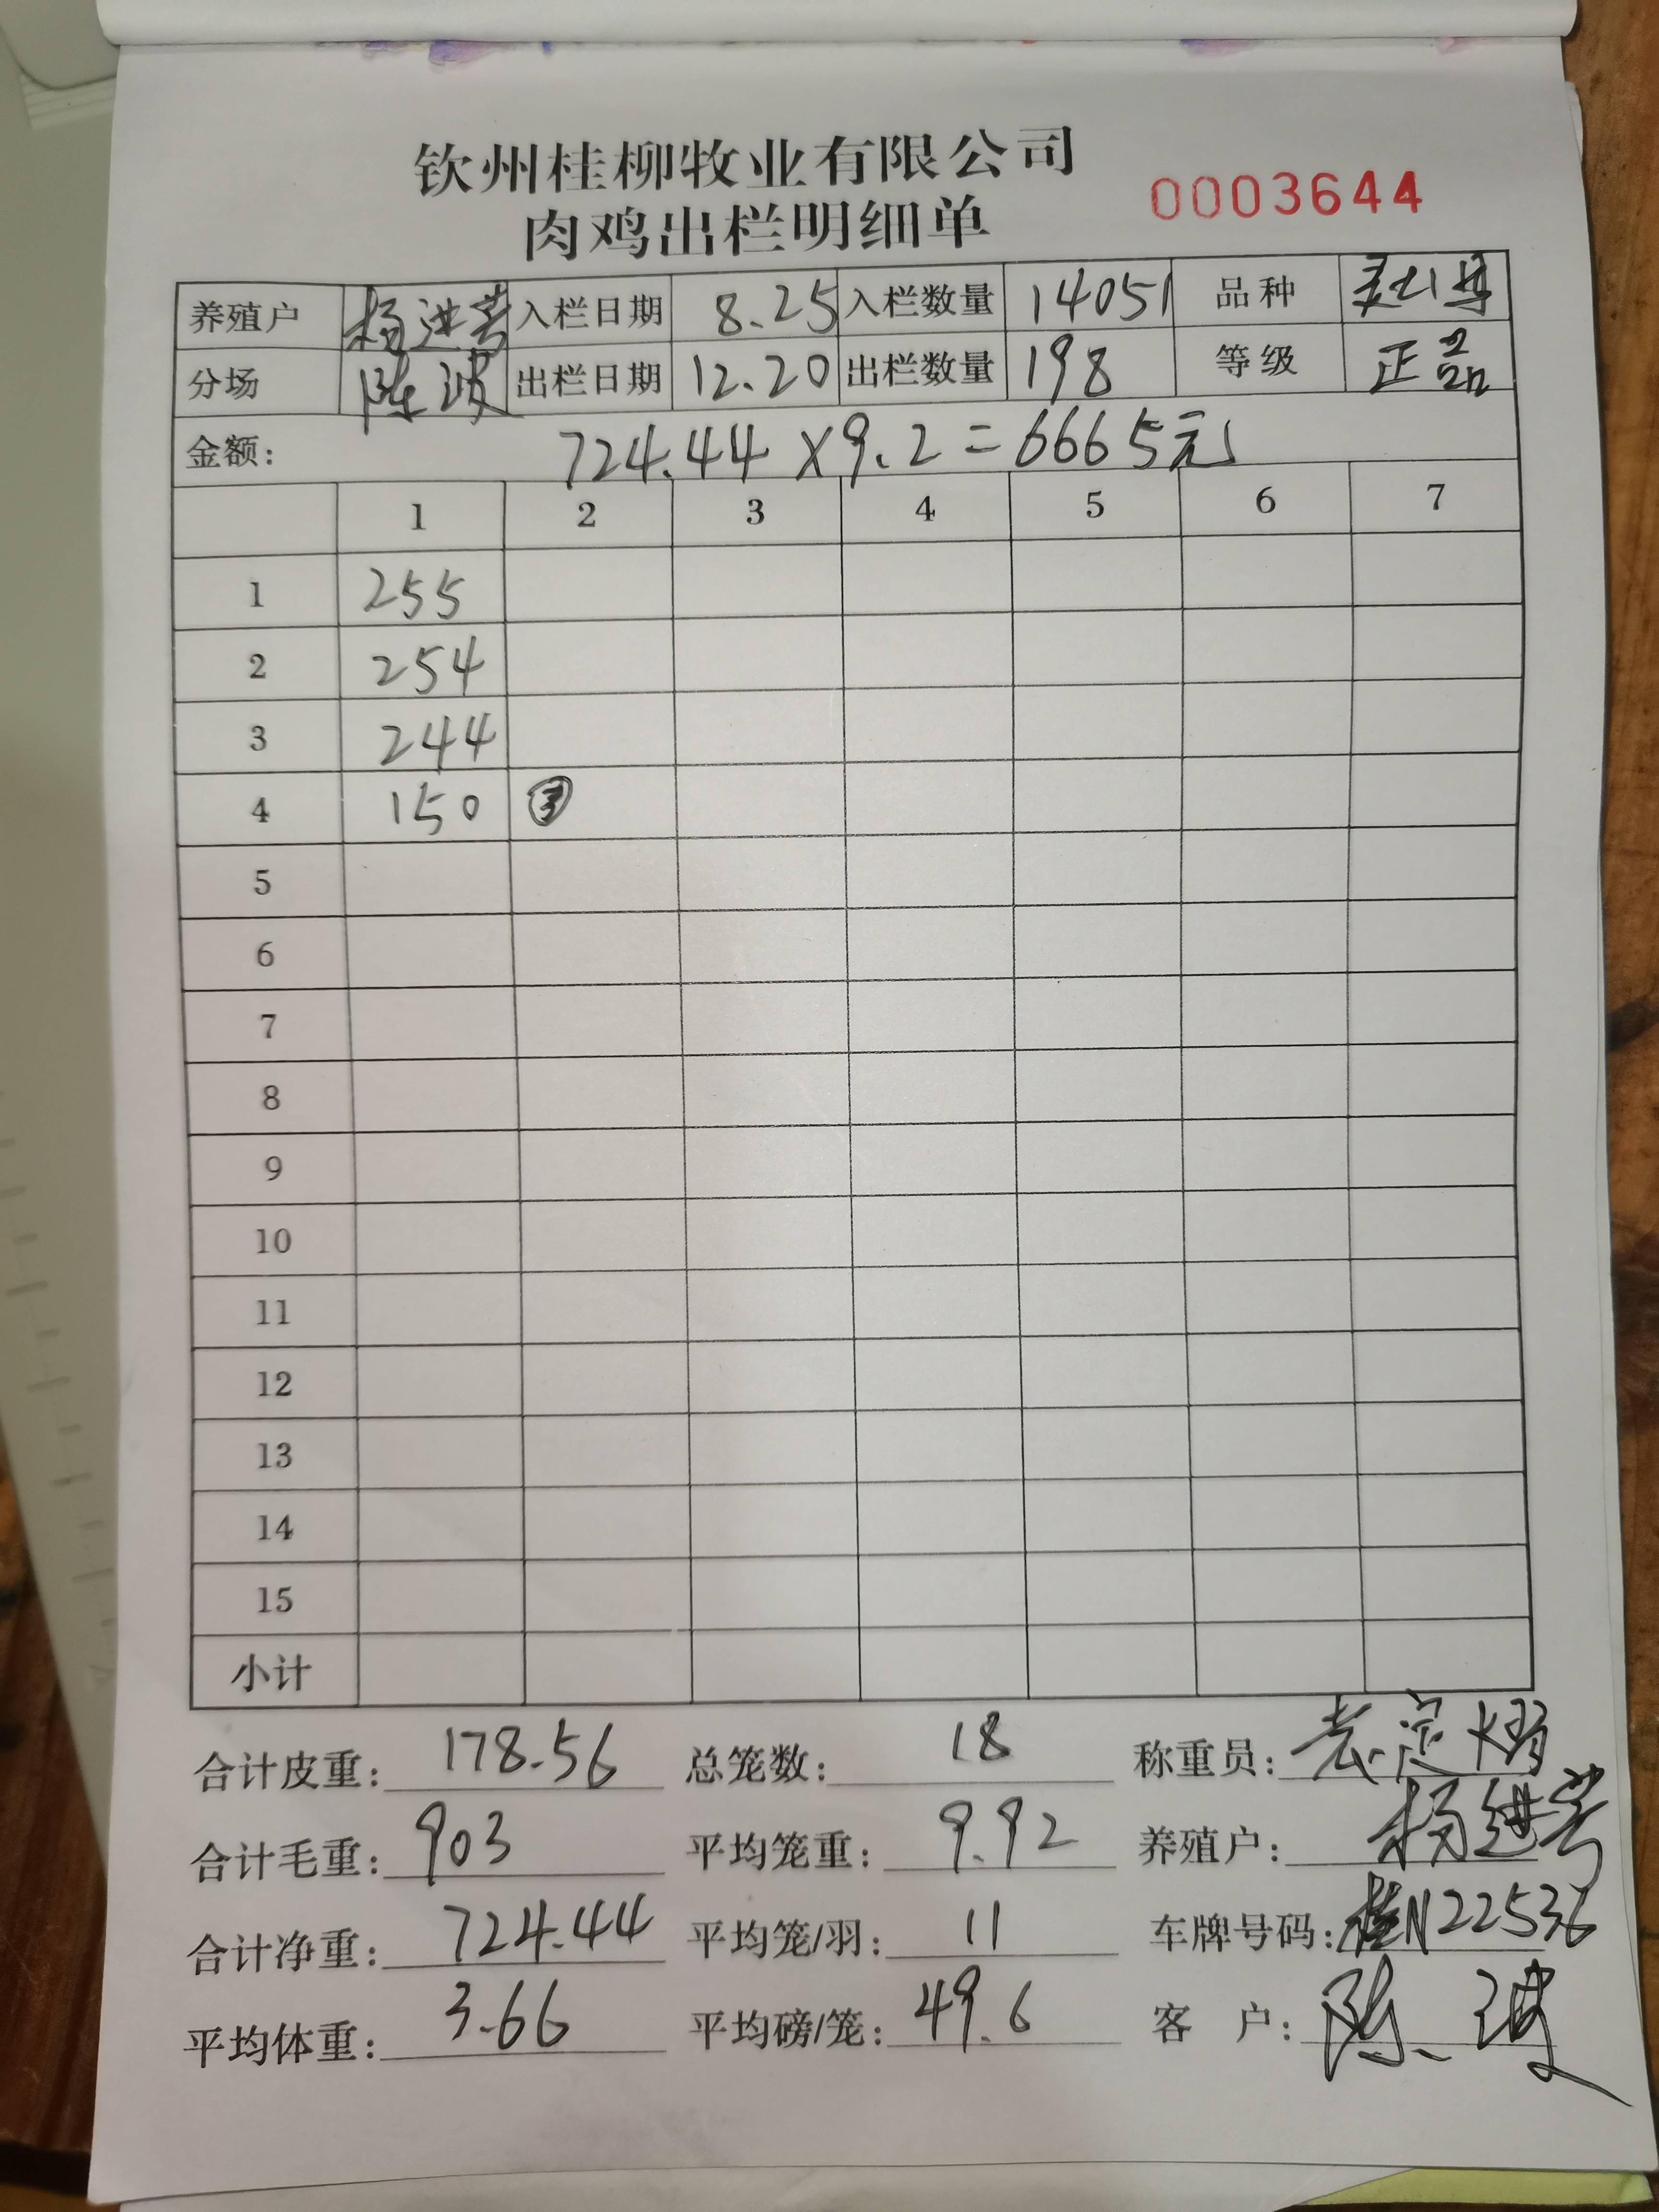 钦州桂柳牧业有限公司
肉鸡出栏明细单
0003644
养殖户 杨进芳 入栏日期 8.25 入栏数量 14051 品种
分场 陈波 出栏日期 12.20 出栏数量 198 等级 正品
金额: 724.44×9.2=6665元
1 2 3 4 5 6 7
1 255
2 254
3 244
4 150 ③
5
6
7
8
9
10
11
12
13
14
15
小计
合计皮重: 178.56 总笼数: 18 称重员:
合计毛重: 903 平均笼重: 9.92 养殖户: 杨进芳
合计净重: 724.44 平均笼/羽: 11 车牌号码: 桂N22536
平均体重: 3.66 平均磅/笼: 49.6 客 户: 陈波